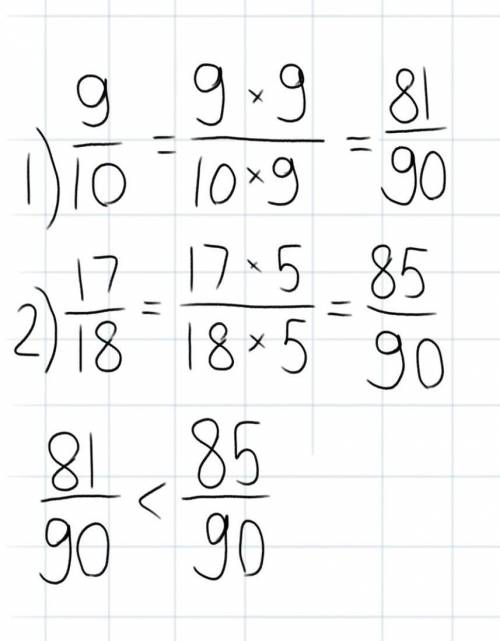 1) 9/10 = 9 × 9/10 × 9 = 81/90
2) 17/18 = 17 × 5/18 × 5 = 85/90
81/90 < 85/90